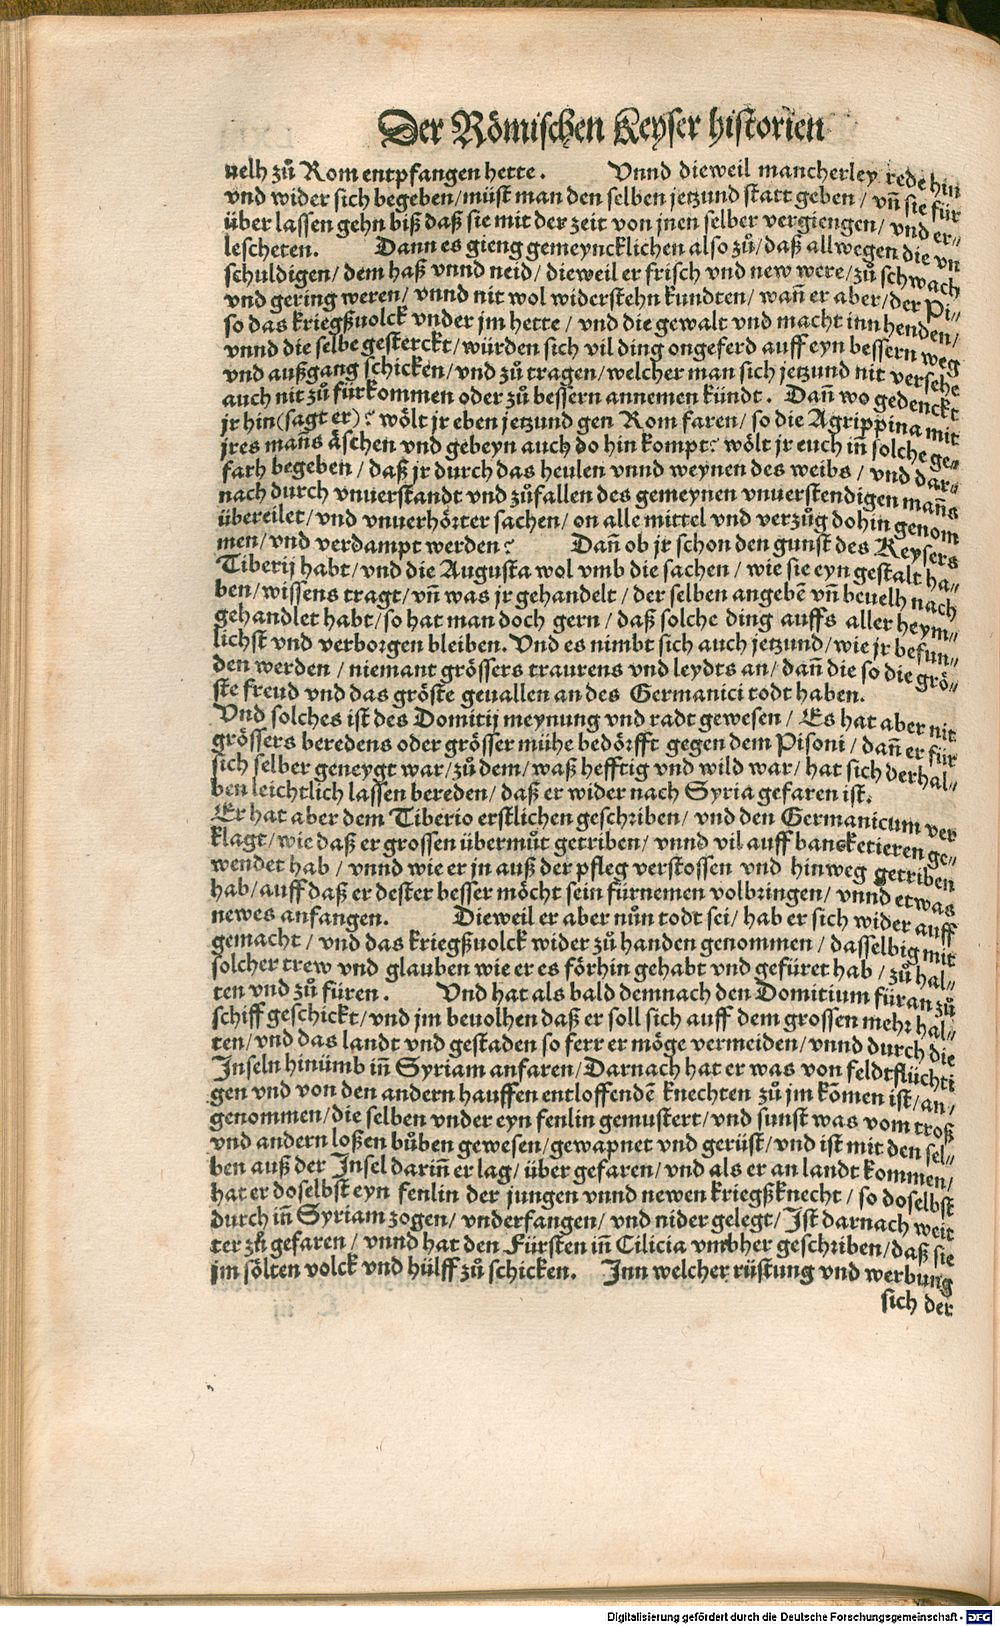 Der Römischen Keyser historien
uelh zů Rom entpfangen hette. Vnnd dieweil mancherley rede hin
vnd wider sich begeben/müst man den selben jetzund statt geben / vñ sie für
über lassen gehn biß daß sie mit der zeit von jnen selber vergiengen/ vnd er⸗
lescheten. Dann es gieng gemeyncklichen also zů/daß allwegen die vn
schuldigen/ dem haß vnnd neid/ dieweil er frisch vnd new were/zů schwach
vnd gering weren/ vnnd nit wol widerstehn kundten/ wañ er aber/der Pi⸗
so das kriegßuolck vnder jm hette / vnd die gewalt vnd macht inn henden/
vnnd die selbe gesterckt/würden sich vil ding ongeferd auff eyn bessern weg
vnd außgang schicken/vnd zů tragen/welcher man sich jetzund nit versehe
auch nit zů fürkommen oder zů bessern annemen kündt. Dañ wo gedenckt
jr hin(sagt er)? wölt jr eben jetzund gen Rom faren/ so die Agrippina mit
jres mañs äschen vnd gebeyn auch do hin kompt? wölt jr euch iñ solche ge⸗
farh begeben / daß jr durch das heulen vnnd weynen des weibs / vnd dar⸗
nach durch vnuerstandt vnd zůfallen des gemeynen vnuerstendigen mañs
übereilet/vnd vnuerhörter sachen/ on alle mittel vnd verzůg dohin genom
men/vnd verdampt werden? Dañ ob jr schon den gunst des Keysers
Tiberij habt/vnd die Augusta wol vmb die sachen / wie sie eyn gestalt ha⸗
ben/wissens tragt/vñ was jr gehandelt / der selben angebẽ vñ beuelh nach
gehandlet habt/so hat man doch gern / daß solche ding auffs aller heym⸗
lichst vnd verborgen bleiben. Vnd es nimbt sich auch jetzund/wie jr befun⸗
den werden / niemant grössers traurens vnd leydts an/ dañ die so die grö⸗
ste freud vnd das gröste geuallen an des Germanici todt haben.
Vnd solches ist des Domitij meynung vnd radt gewesen / Es hat aber nit
grössers beredens oder grösser mühe bedörfft gegen dem Pisoni / dañ er für
sich selber geneygt war/zů dem/waß hefftig vnd wild war/ hat sich derhal⸗
ben leichtlich lassen bereden/ daß er wider nach Syria gefaren ist.
Er hat aber dem Tiberio erstlichen geschriben/ vnd den Germanicum ver
klagt/wie daß er grossen übermůt getriben/ vnnd vil auff bancketieren ge⸗
wendet hab / vnnd wie er jn auß der pfleg verstossen vnd hinweg getriben
hab/auff daß er dester besser möcht sein fürnemen volbringen/ vnnd etwas
newes anfangen. Dieweil er aber nůn todt sei/ hab er sich wider auff
gemacht / vnd das kriegßuolck wider zů handen genommen / dasselbig mit
solcher trew vnd glauben wie er es förhin gehabt vnd gefüret hab / zů hal⸗
ten vnd zů füren. Vnd hat als bald demnach den Domitium füran zů
schiff geschickt/vnd jm beuolhen daß er soll sich auff dem grossen mehr hal⸗
ten/vnd das landt vnd gestaden so ferr er möge vermeiden/vnnd durch die
Inseln hinümb iñ Syriam anfaren/Darnach hat er was von feldtflüchti
gen vnd von den andern hauffen entloffendẽ knechten zů jm kõmen ist/an⸗
genommen/die selben vnder eyn fenlin gemustert/vnd sunst was vom troß
vnd andern loßen bůben gewesen/gewapnet vnd gerüst/vnd ist mit den sel⸗
ben auß der Insel dariñ er lag/ über gefaren/vnd als er an landt kommen/
hat er doselbst eyn fenlin der jungen vnnd newen kriegßknecht/ so doselbst
durch iñ Syriam zogen/ vnderfangen/ vnd nider gelegt/Ist darnach weit
ter zů gefaren / vnnd hat den Fürsten iñ Cilicia vmbher geschriben/daß sie
jm sölten volck vnd hülff zů schicken. Inn welcher rüstung vnd werbung
sich der
Digitalisierung gefördert durch die Deutsche Forschungsgemeinschaft - DFG